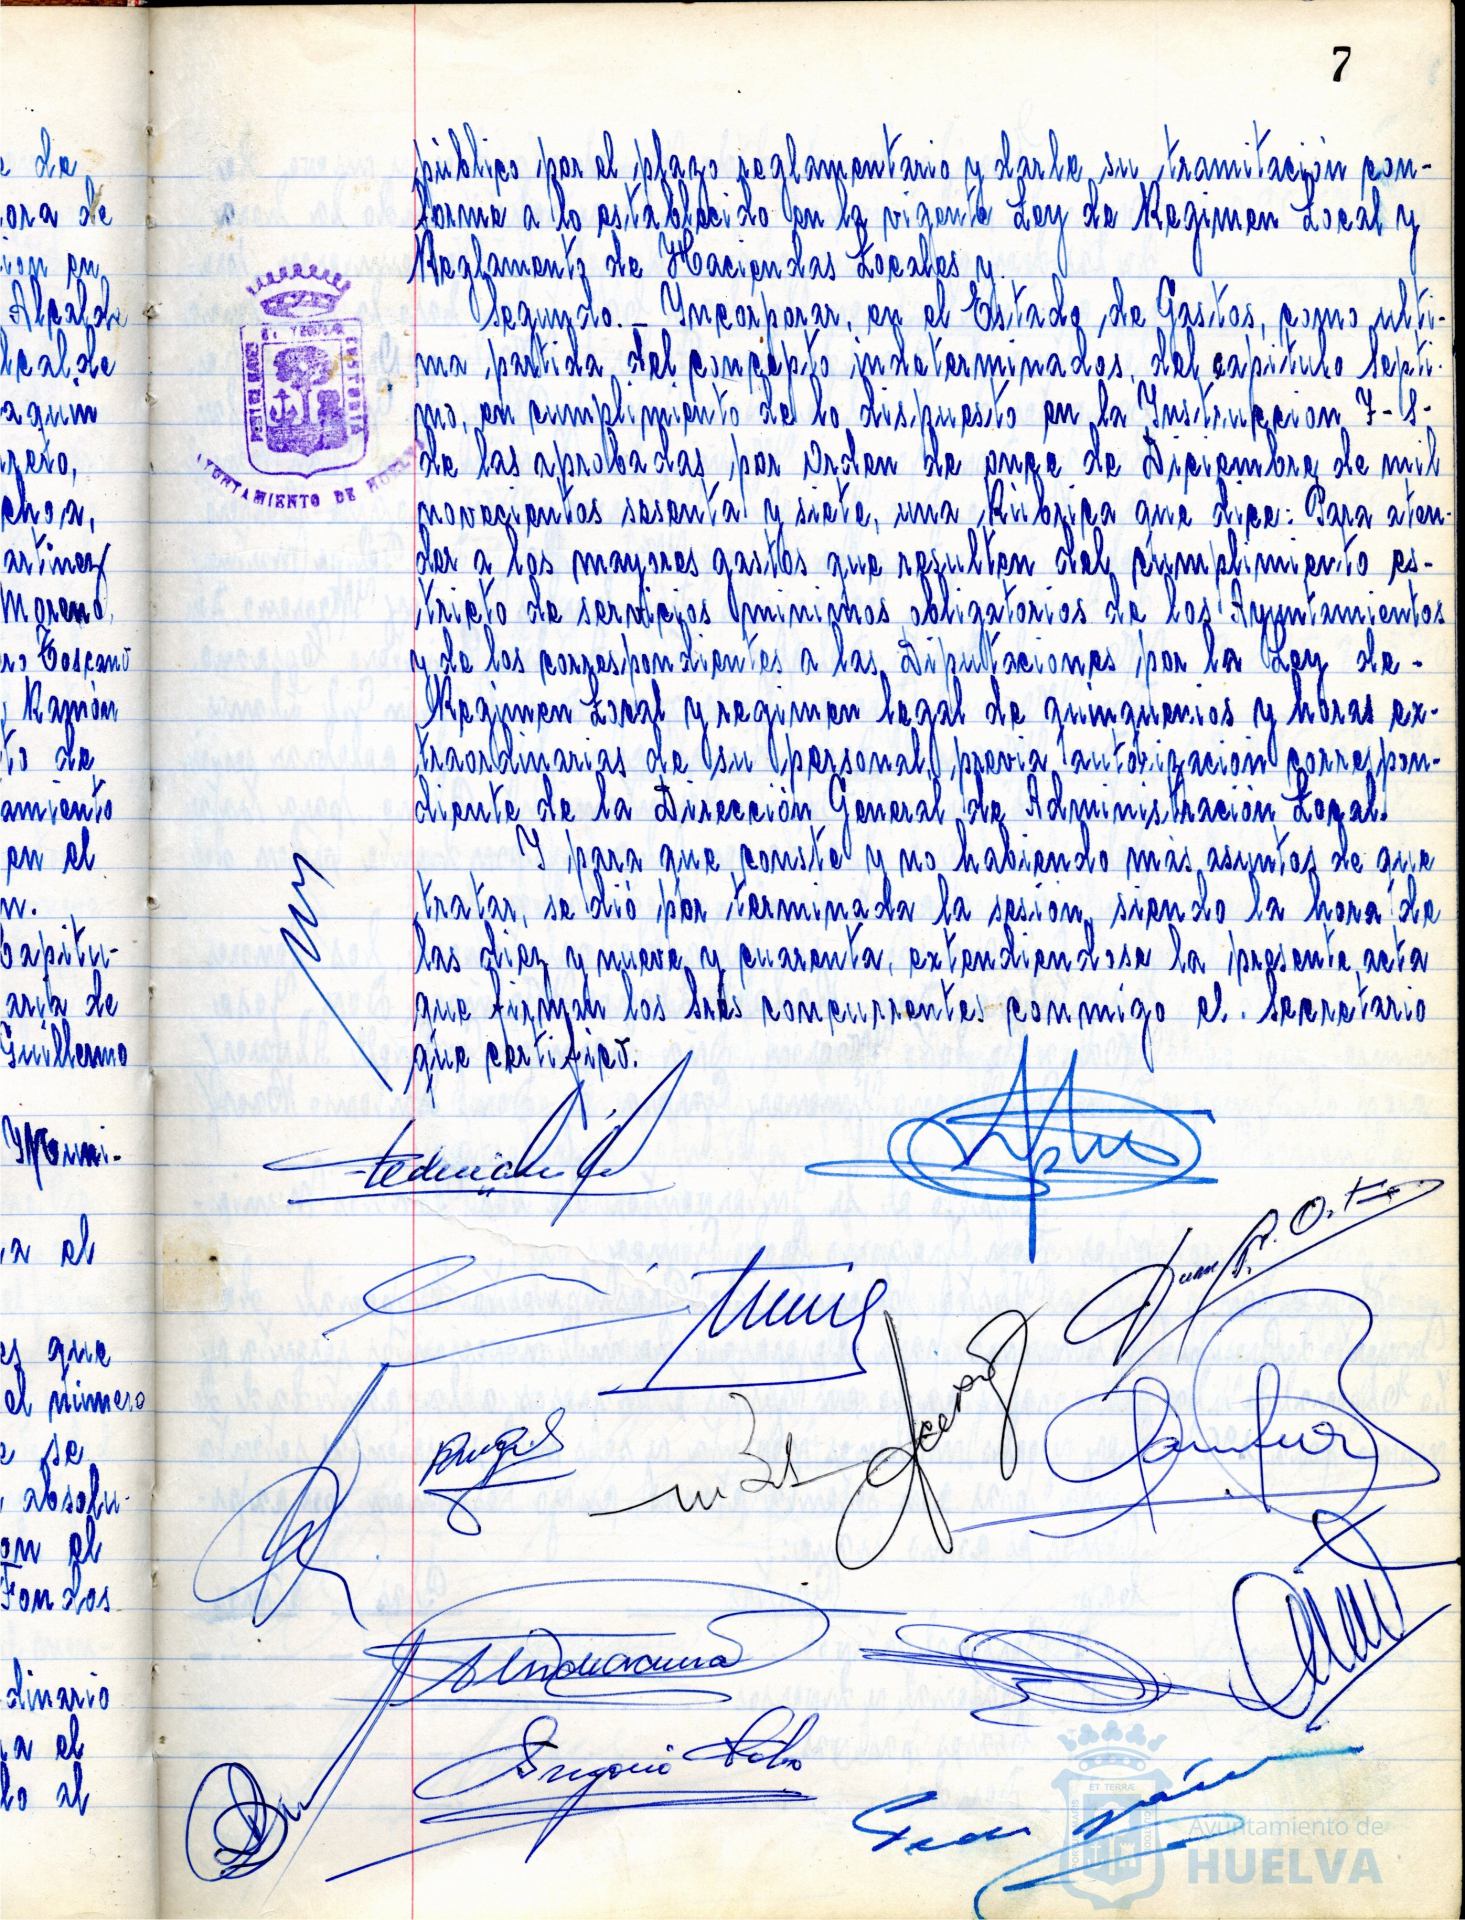 7
público por el plazo reglamentario y darle su tramitación con-
forme a lo establecido en la vigente Ley de Regimen Local y
Reglamento de Haciendas Locales y.
Segundo.- Incorporar, en el Estado de Gastos, como ulti-
ma partida del concepto indeterminados, del capitulo septi-
mo, en cumplimiento de lo dispuesto en la Instruccion 7-8-
de las aprobadas por Orden de once de Diciembre de mil
novecientos sesenta y siete, una Rúbrica que dice: Para aten-
der a los mayores gastos que resulten del cumplimiento es-
tricto de servicios minimos obligatorios de los Ayuntamientos
y de los correspondientes a las Diputaciones por la Ley de-
Regimen Local y regimen legal de quinquenios y horas ex-
traordinarias de su personal, previa autorización correspon-
diente de la Dirección General de Administración Local.
Y para que conste y no habiendo más asuntos de que
tratar, se dió por terminada la sesión, siendo la hora de
las diez y nueve y cuarenta, extendiendose la presente acta
que firman los Sres concurrentes conmigo el. Secretario
que certifico.
AYUNTAMIENTO DE HUELVA
e de
ora de
ion en
Alcalde
lcalde
aquin
reto,
choa,
artinez
Moreno,
ro Toscano
Ramón
to de
amiento
en el
n.
Capitu-
aria de
Guillermo
Muni-
a el
es que
el número
e se
absolu-
on el
Fondos
dinario
a el
lo al
Gregorio
ET TERRÆ
Ayuntamiento de
HUELVA